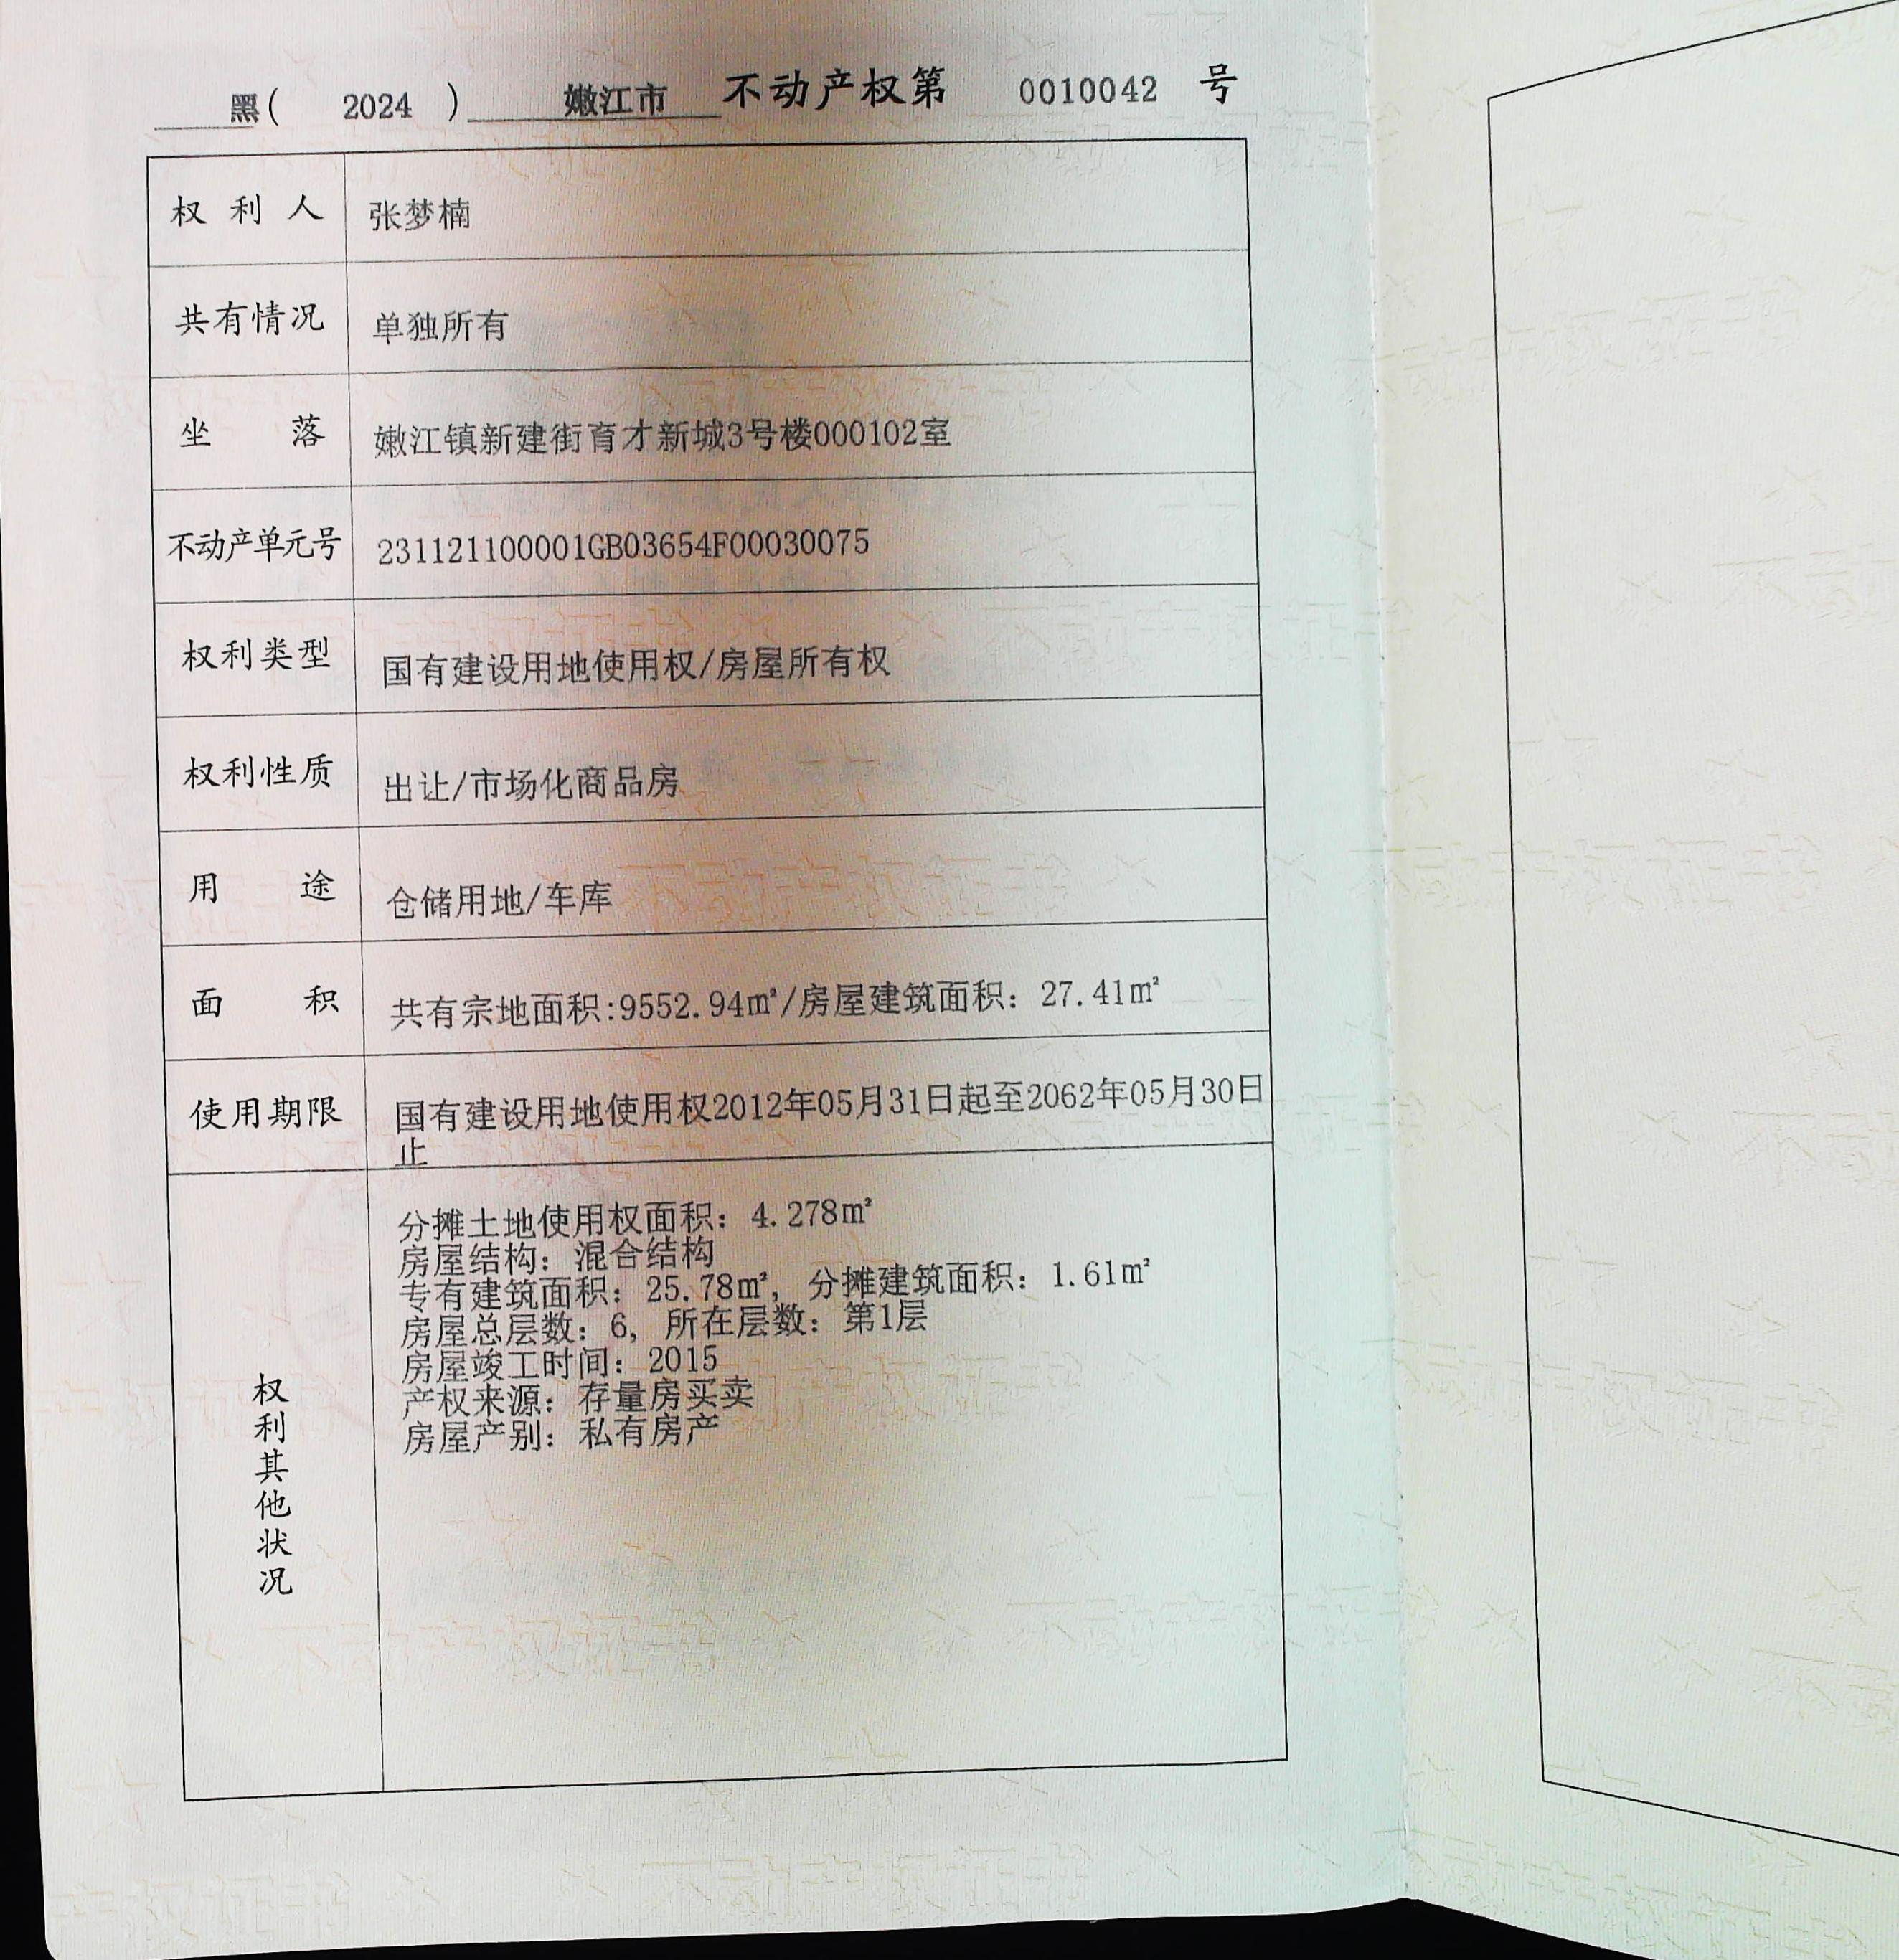 黑( 2024 ) 嫩江市 不动产权第 0010042 号
权利人 张梦楠
共有情况 单独所有
坐落 嫩江镇新建街育才新城3号楼000102室
不动产单元号 231121100001GB03654F00030075
权利类型 国有建设用地使用权/房屋所有权
权利性质 出让/市场化商品房
用途 仓储用地/车库
面积 共有宗地面积:9552.94㎡/房屋建筑面积：27.41㎡
使用期限 国有建设用地使用权2012年05月31日起至2062年05月30日
止
权利其他状况
分摊土地使用权面积：4.278㎡
房屋结构：混合结构
专有建筑面积：25.78㎡，分摊建筑面积：1.61㎡
房屋总层数：6，所在层数：第1层
房屋竣工时间：2015
产权来源：存量房买卖
房屋产别：私有房产